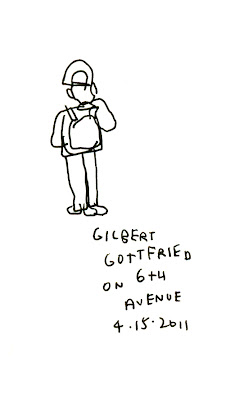 GILBERT
GOTTFRIED
ON 6TH
AVENUE
4.15.2011